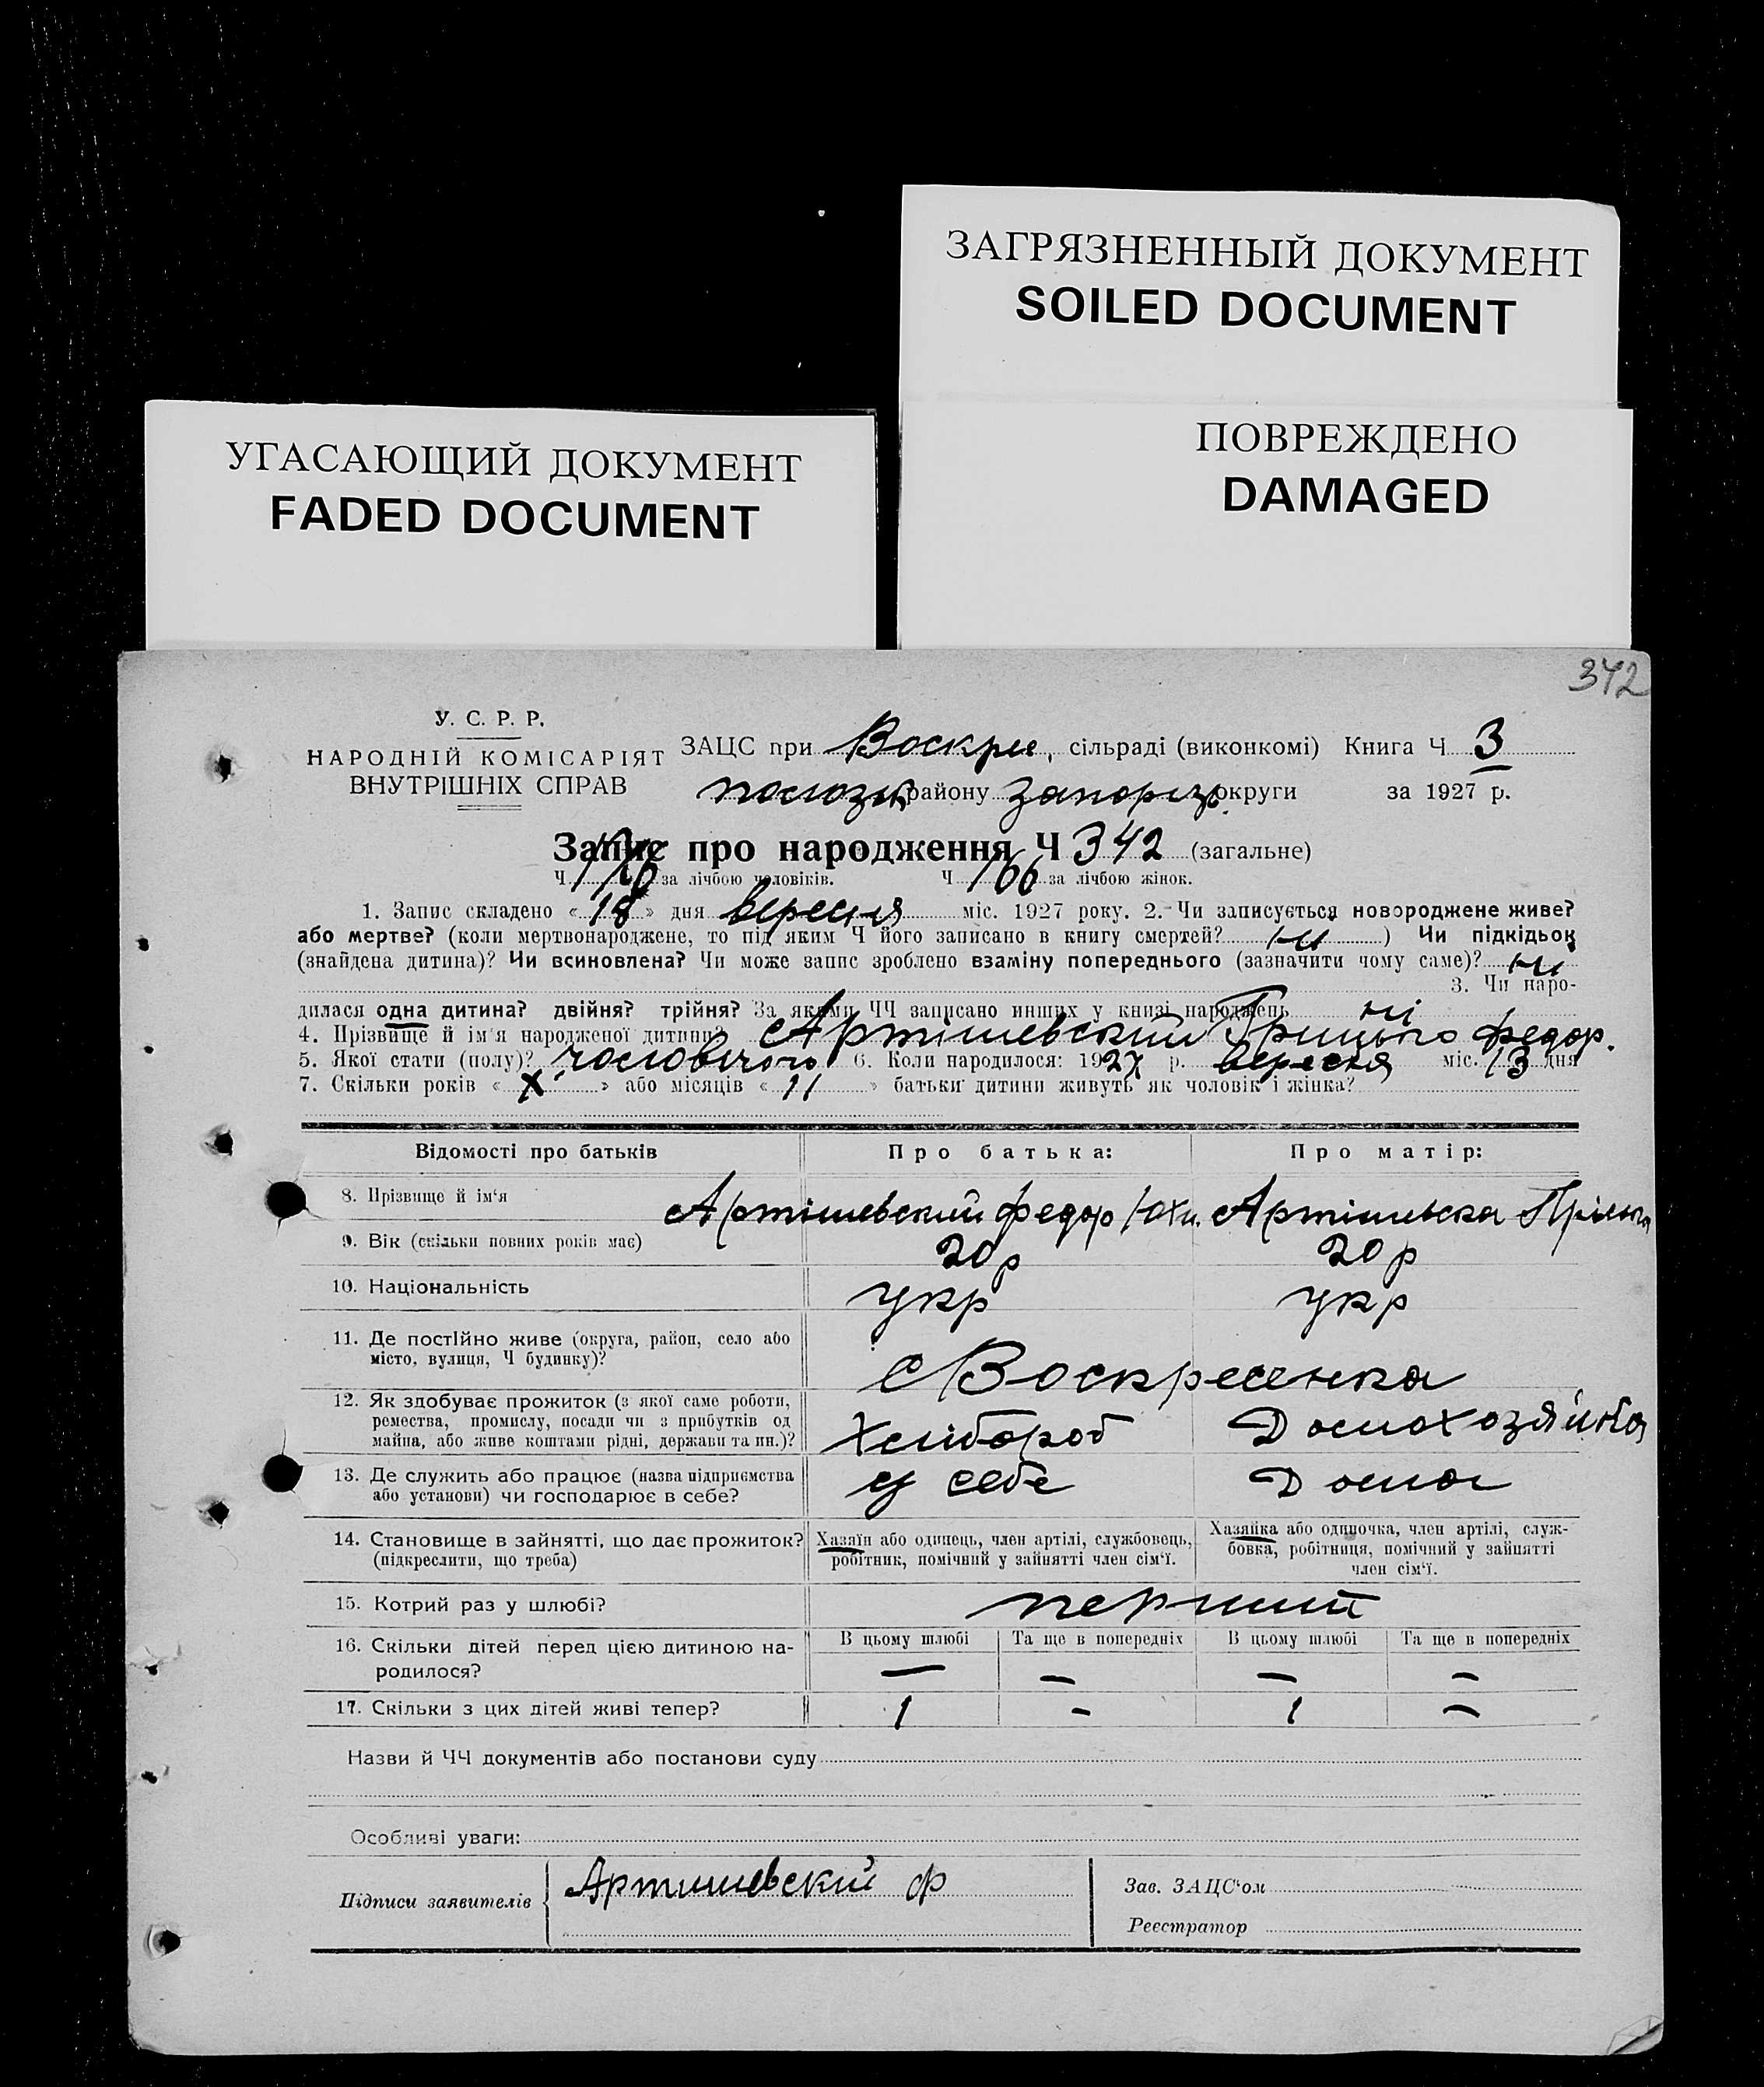 ЗАГРЯЗНЕННЫЙ ДОКУМЕНТ
SOILED DOCUMENT
ПОВРЕЖДЕНО
DAMAGED
УГАСАЮЩИЙ ДОКУМЕНТ
FADED DOCUMENT
342
У. С. Р. Р.
НАРОДНІЙ КОМІСАРІЯТ
ВНУТРІШНІХ СПРАВ
ЗАЦС при Воскрес, сільраді (виконкомі) Книга Ч 3
району Запоріз. округи за 1927 р.
Запис про народження Ч 342 (загальне)
Ч 176 за лічбою чоловіків. Ч 166 за лічбою жінок.
1. Запис складено « 18 » дня вересня міс. 1927 року. 2. Чи записується новороджене живе?
або мертве? (коли мертвонароджене, то під яким Ч його записано в книгу смертей? ні ) Чи підкідьок
(знайдена дитина)? Чи всиновлена? Чи може запис зроблено взаміну попереднього (зазначити чому саме)? ні
3. Чи наро-
дилася одна дитина? двійня? трійня? За якими ЧЧ записано инших у книзі народжень ні
4. Прізвище й ім'я народженої дитини? Артішевский Грицько федор.
5. Якої стати (полу)? чоловічого 6. Коли народилося: 1927 р. вересня міс. 13 дня
7. Скільки років « X » або місяців « 11 » батьки дитини живуть як чоловік і жінка?
Відомості про батьків Про батька: Про матір:
8. Прізвище й ім'я Артішевский федор Юхи. Артішевска
9. Вік (скільки повних років має) 20 р 20 р
10. Національність укр укр
11. Де постійно живе (округа, район, село або
місто, вулиця, Ч будинку)? с Воскресенка
12. Як здобуває прожиток (з якої саме роботи,
ремества, промислу, посади чи з прибутків од
майна, або живе коштами рідні, держави та ин.)? Хлібороб Домохозяйка
13. Де служить або працює (назва підприємства
або установи) чи господарює в себе? у себе Дома
14. Становище в зайнятті, що дає прожиток?
(підкреслити, що треба)
Хазяїн або одинець, член артілі, службовець,
робітник, помічний у зайнятті член сім'ї.
Хазяйка або одиночка, член артілі, служ-
бовка, робітниця, помічний у зайнятті
член сім'ї.
15. Котрий раз у шлюбі? перший
16. Скільки дітей перед цією дитиною на-
родилося?
В цьому шлюбі Та ще в попередніх В цьому шлюбі Та ще в попередніх
— — — —
17. Скільки з цих дітей живі тепер? 1 - 1 -
Назви й ЧЧ документів або постанови суду
Особливі уваги:
Підписи заявителів Артишевский Ф
Зав. ЗАЦС'ом
Реєстратор